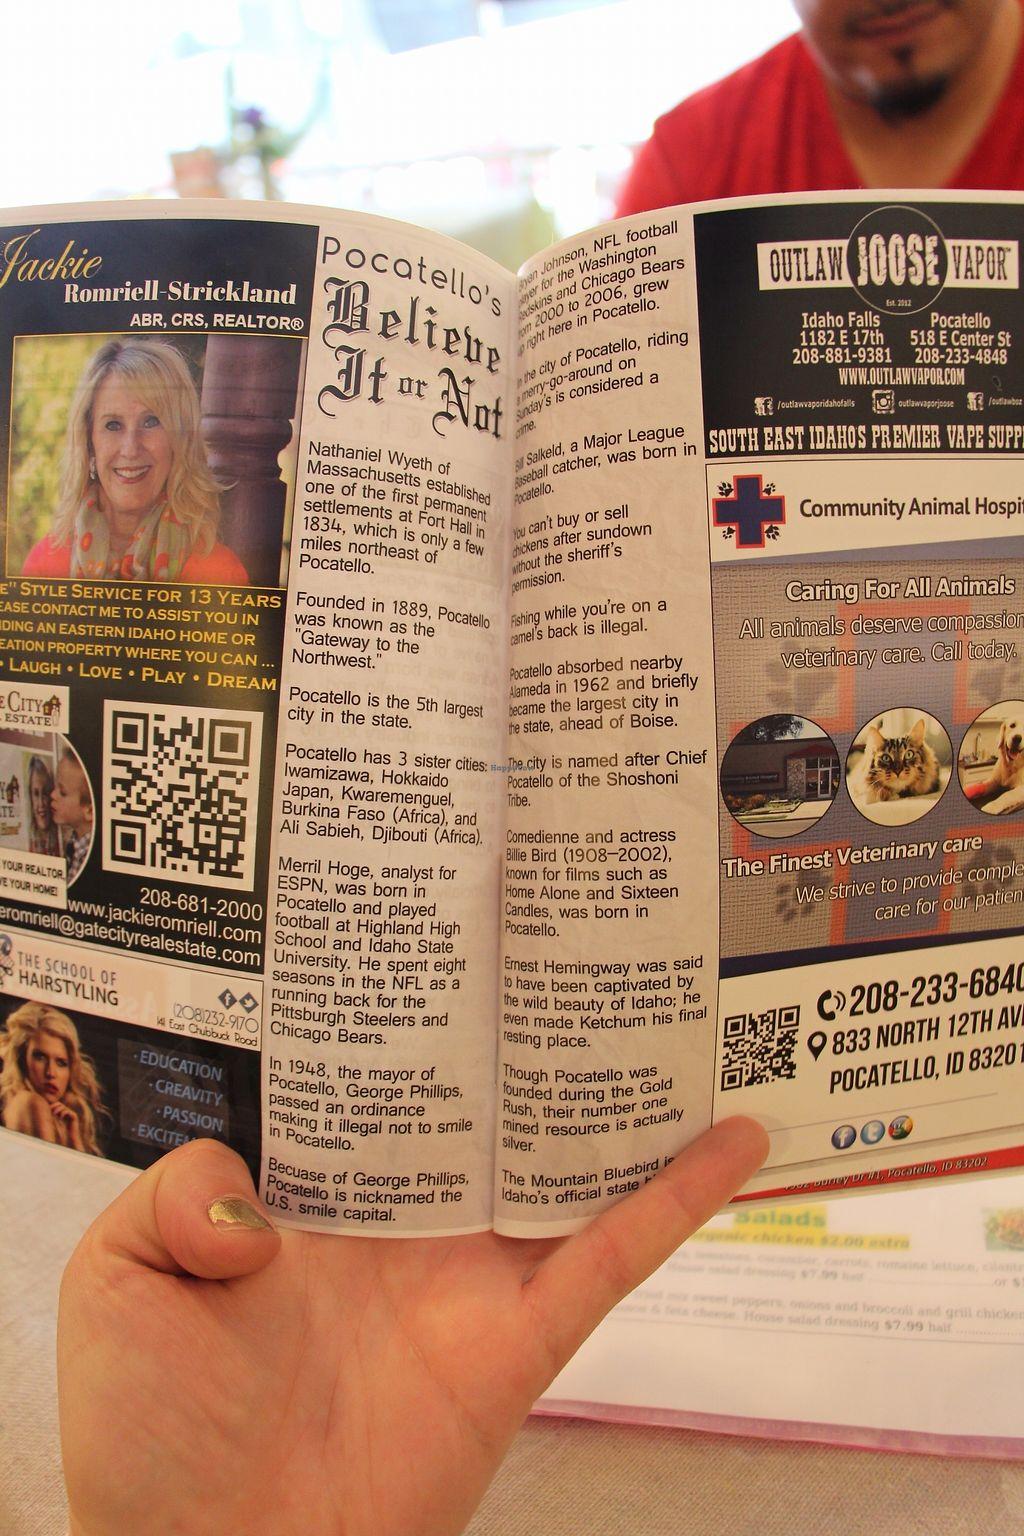 Jackie
Romriell-Strickland
ABR, CRS, REALTOR®
E" STYLE SERVICE FOR 13 YEARS
EASE CONTACT ME TO ASSIST YOU IN
DING AN EASTERN IDAHO HOME OR
EATION PROPERTY WHERE YOU CAN ...
• LAUGH • LOVE • PLAY • DREAM
E CITY
ESTATE
YOUR REALTOR,
VE YOUR HOME!
208-681-2000
www.jackieromriell.com
eromriell@gatecityrealestate.com
THE SCHOOL OF
HAIRSTYLING
(208)232-9170
141 East Chubbuck Road
• EDUCATION
• CREAVITY
• PASSION
• EXCITEM
Pocatello's
Believe
It or Not
Nathaniel Wyeth of
Massachusetts established
one of the first permanent
settlements at Fort Hall in
1834, which is only a few
miles northeast of
Pocatello.
Founded in 1889, Pocatello
was known as the
"Gateway to the
Northwest."
Pocatello is the 5th largest
city in the state.
Pocatello has 3 sister cities:
Iwamizawa, Hokkaido
Japan, Kwaremenguel,
Burkina Faso (Africa), and
Ali Sabieh, Djibouti (Africa).
Merril Hoge, analyst for
ESPN, was born in
Pocatello and played
football at Highland High
School and Idaho State
University. He spent eight
seasons in the NFL as a
running back for the
Pittsburgh Steelers and
Chicago Bears.
In 1948, the mayor of
Pocatello, George Phillips,
passed an ordinance
making it illegal not to smile
in Pocatello.
Becuase of George Phillips,
Pocatello is nicknamed the
U.S. smile capital.
Bryan Johnson, NFL football
player for the Washington
Redskins and Chicago Bears
from 2000 to 2006, grew
up right here in Pocatello.
In the city of Pocatello, riding
a merry-go-around on
Sunday's is considered a
crime.
Bill Salkeld, a Major League
Baseball catcher, was born in
Pocatello.
You can't buy or sell
chickens after sundown
without the sheriff's
permission.
Fishing while you're on a
camel's back is illegal.
Pocatello absorbed nearby
Alameda in 1962 and briefly
became the largest city in
the state, ahead of Boise.
The city is named after Chief
Pocatello of the Shoshoni
Tribe.
Comedienne and actress
Billie Bird (1908–2002),
known for films such as
Home Alone and Sixteen
Candles, was born in
Pocatello.
Ernest Hemingway was said
to have been captivated by
the wild beauty of Idaho; he
even made Ketchum his final
resting place.
Though Pocatello was
founded during the Gold
Rush, their number one
mined resource is actually
silver.
The Mountain Bluebird is
Idaho's official state
OUTLAW JOOSE VAPOR
Est. 2012
Idaho Falls
1182 E 17th
208-881-9381
Pocatello
518 E Center St
208-233-4848
WWW.OUTLAWVAPOR.COM
/outlawvaporidahofalls
outlawvaporjoose
/outlawboz
SOUTH EAST IDAHO'S PREMIER VAPE SUPP
Community Animal Hospi
Caring For All Animals
All animals deserve compassion
veterinary care. Call today.
The Finest Veterinary care
We strive to provide comple
care for our patien
208-233-6840
833 NORTH 12TH AV
POCATELLO, ID 83201
Burley Dr #1, Pocatello, ID 83202
Salads
organic chicken $2.00 extra
tomatoes, cucumber, carrots, romaine lettuce,
House salad dressing $7.99 half
sweet peppers, onions and broccoli and grill chicken
& feta cheese. House salad dressing $7.99 half